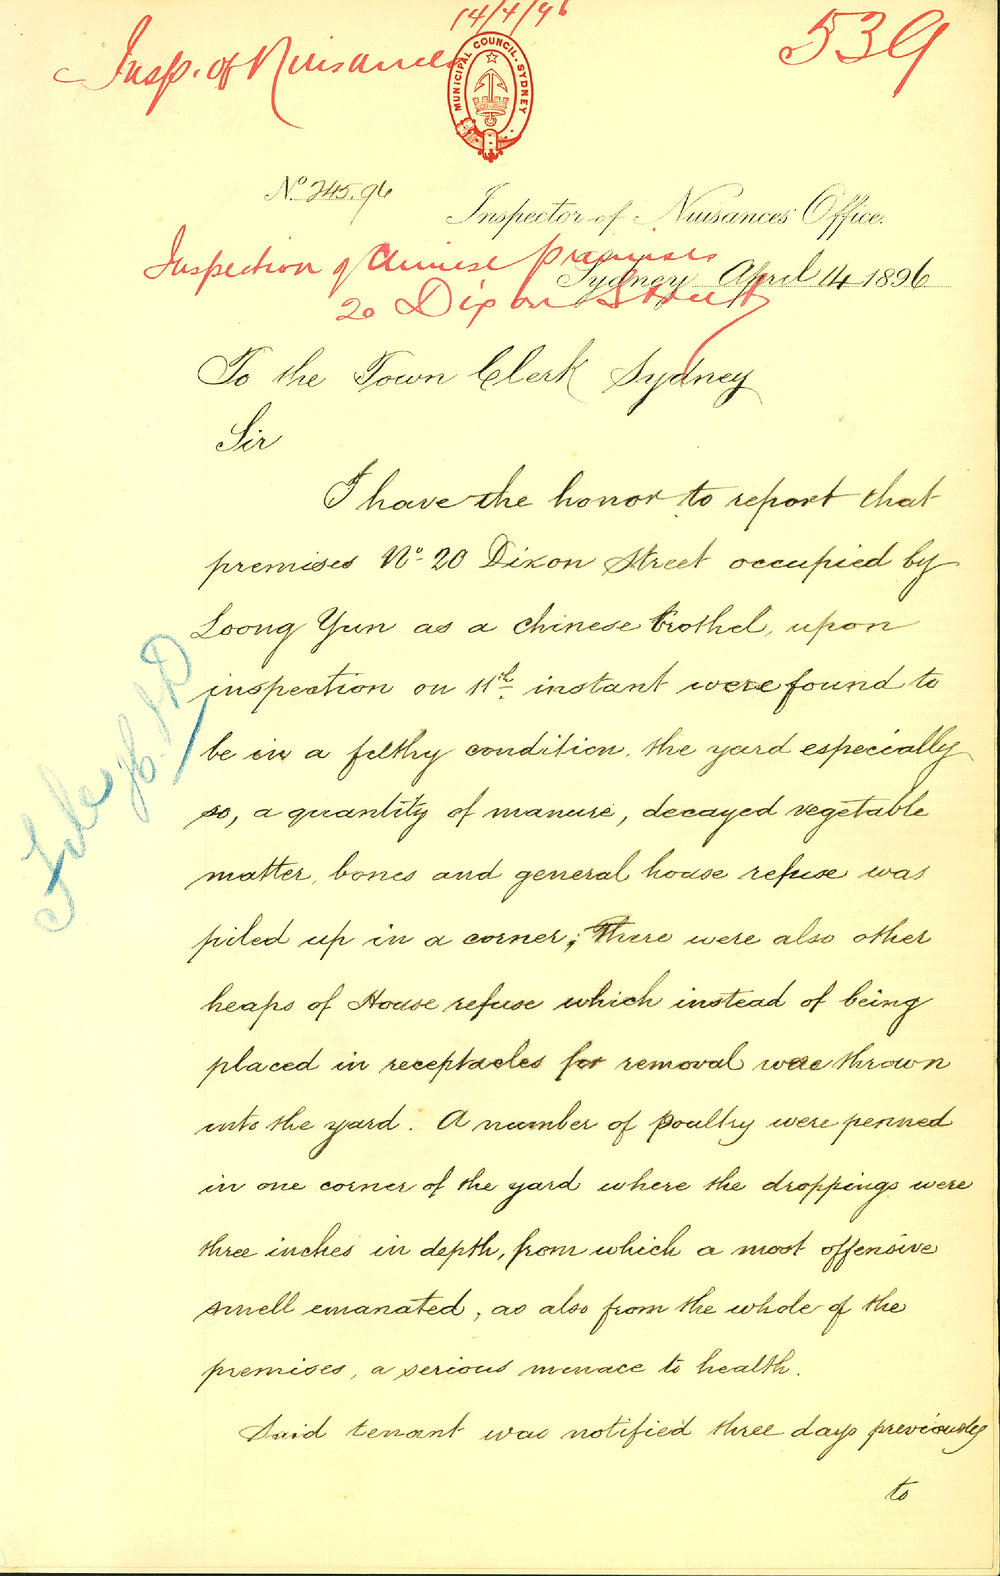 14/4/96
Insp. of Nuisances
539
MUNICIPAL COUNCIL. SYDNEY
No. 245.96
Inspector of Nuisances' Office.
Inspection of Chinese premises
Sydney April 14 1896
20 Dixon Street
To the Town Clerk Sydney
Sir
I have the honor to report that
premises No. 20 Dixon Street occupied by
Loong Yun as a chinese brothel, upon
inspection on 11th instant were found to
be in a filthy condition. the yard especially
so, a quantity of manure, decayed vegetable
matter, bones and general house refuse was
piled up in a corner; There were also other
heaps of House refuse which instead of being
placed in receptacles for removal were thrown
into the yard. A number of poultry were penned
in one corner of the yard where the droppings were
three inches in depth, from which a most offensive
smell emanated, as also from the whole of the
premises, a serious menace to health.
Said tenant was notified three days previously
to
File